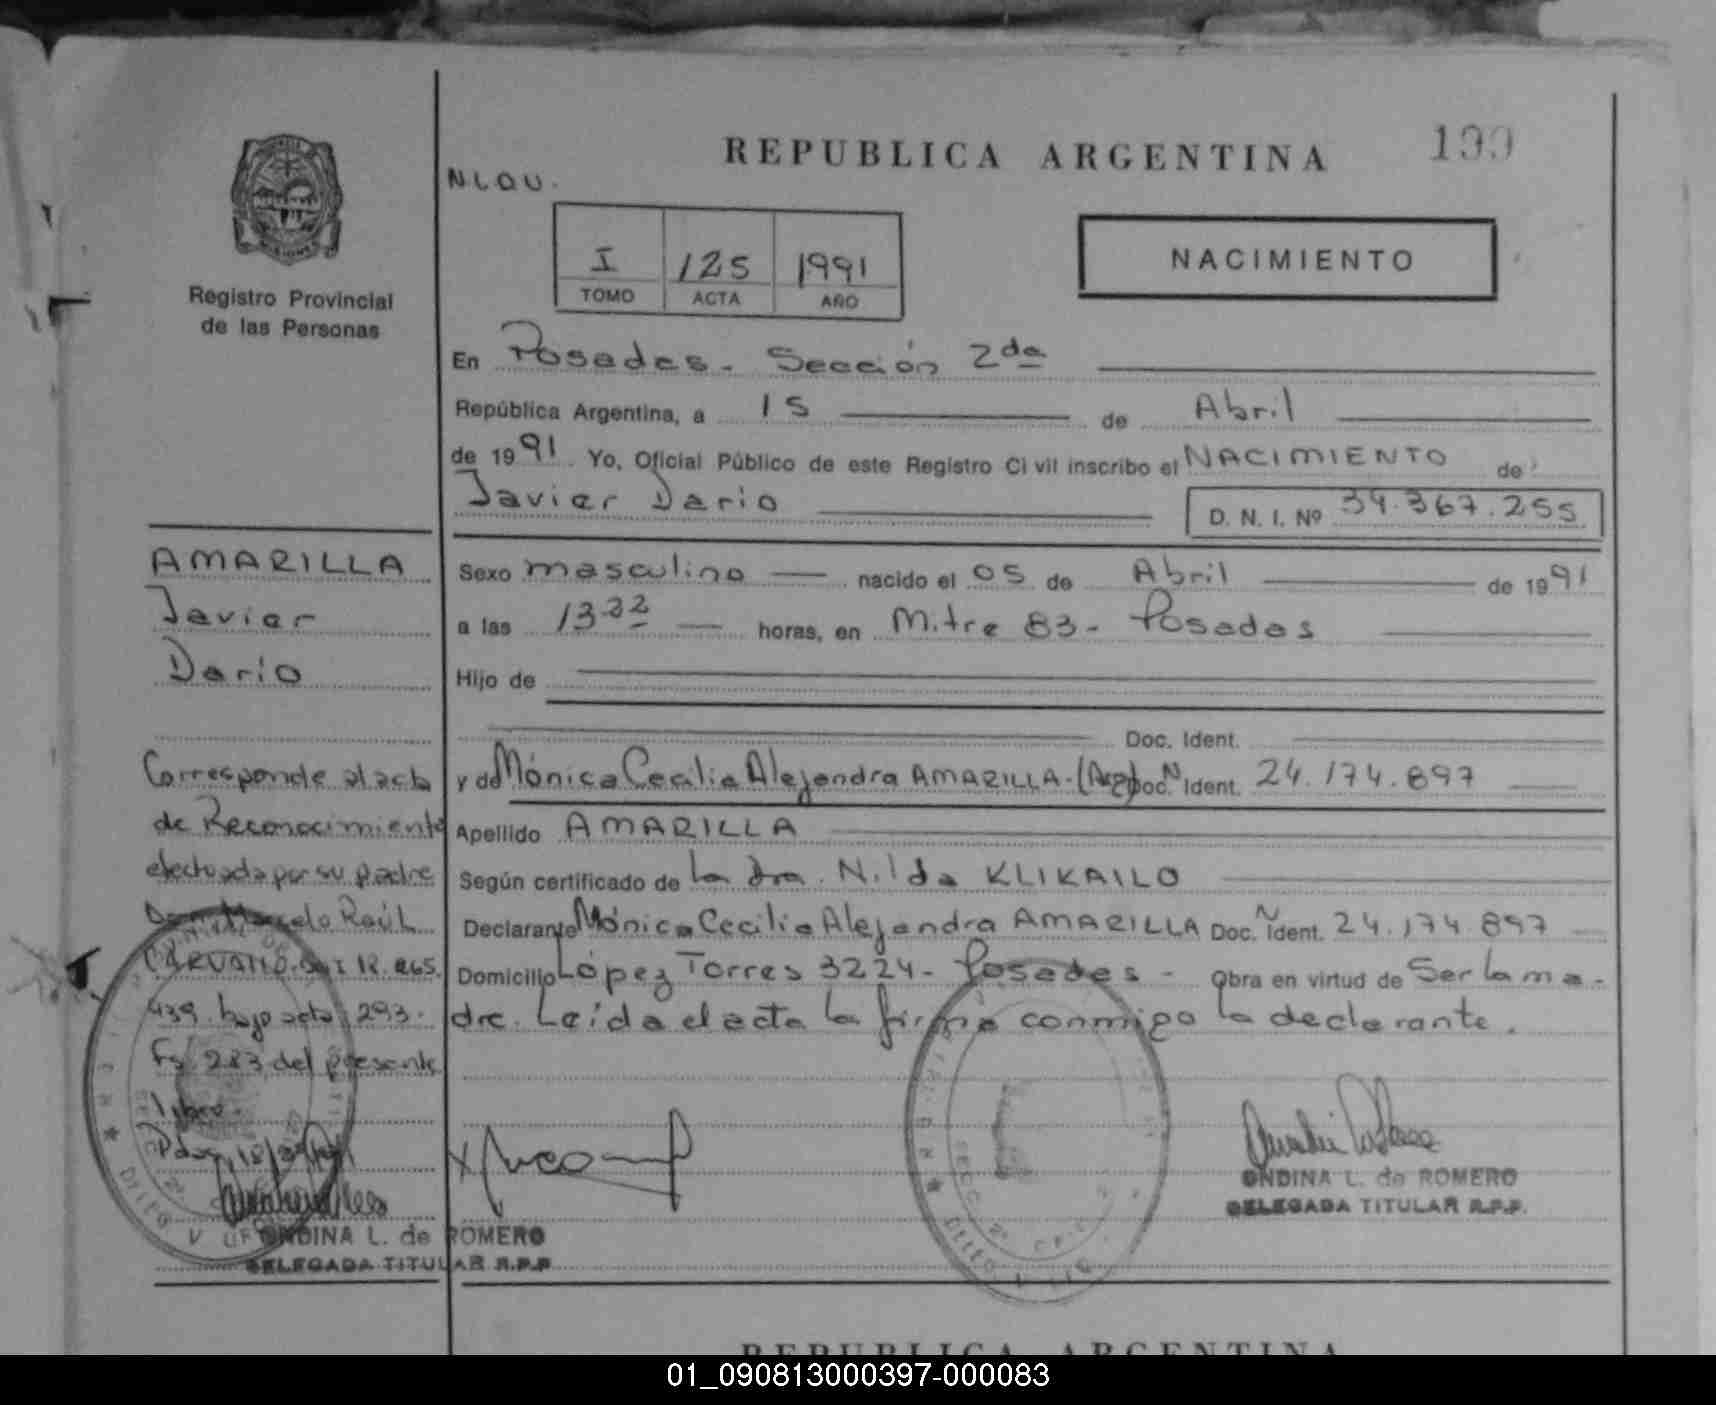 REPUBLICA ARGENTINA
199
N.L.Q.U.
I 125 1991
TOMO ACTA AÑO
NACIMIENTO
Registro Provincial
de las Personas
En Posadas - Sección 2da
República Argentina, a 15 de Abril
de 1991 Yo, Oficial Público de este Registro Civil inscribo el NACIMIENTO de
Javier Dario D. N. I. Nº 34.367.255
Sexo masculino nacido el 05 de Abril de 1991
a las horas, en Mitre 83 - Posadas
Hijo de
Doc. Ident.
y de Mónica Cecilia Alejandra AMARILLA - (Arg) Doc. Ident. 24.174.897
Apellido AMARILLA
Según certificado de la Dra. Nilda KLIKAILO
Declarante Mónica Cecilia Alejandra AMARILLA Doc. Ident. 24.174.897
Domicilio López Torres 3224 - Posadas - Obra en virtud de Ser la ma-
dre. Leída el acta la firma conmigo la declarante.
ONDINA L. de ROMERO
DELEGADA TITULAR R.P.P.
AMARILLA
Javier
Dario
Corresponde al acta
de Reconocimiento
efectuada por su padre
Don Marcelo Raúl
439 bajo acta 293.
Fs. 283 del presente
libro.
ONDINA L. de ROMERO
DELEGADA TITULAR R.P.P
REPUBLICA ARGENTINA
01_090813000397-000083